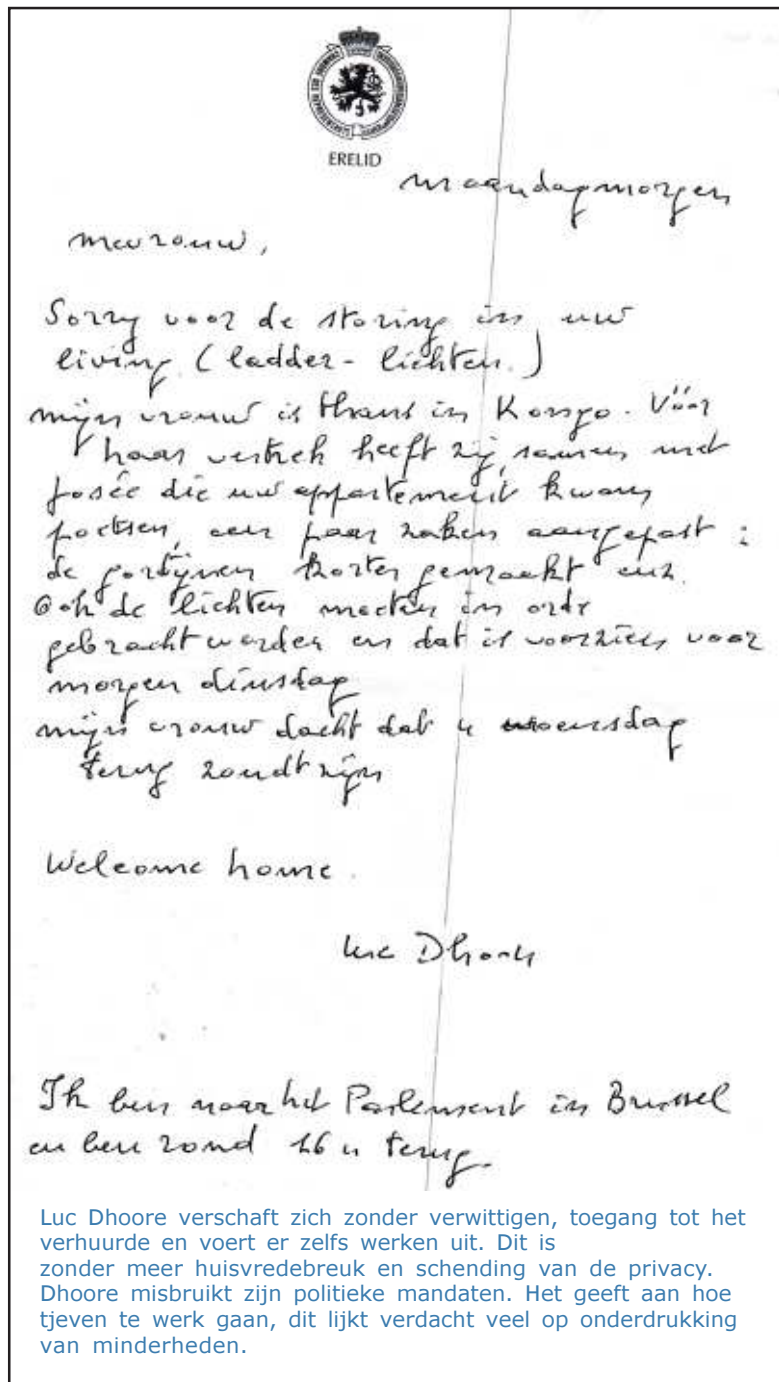 ERELID
maandagmorgen
mevrouw,
Sorry voor de storing in uw
living (ladder - lichten.)
mijn vrouw is thans in Kongo. Vóór
haar vertrek heeft zij, samen met
Josée die uw appartement kwam
poetsen, een paar zaken aangepast :
de gordijnen korter gemaakt enz.
Ook de lichten moeten in orde
gebracht worden en dat is voorzien voor
morgen dinsdag
mijn vrouw dacht dat u woensdag
terug zoudt zijn
Welcome home.
Luc Dhoore
Ik ben naar het Parlement in Brussel
en ben rond 16 u terug.
Luc Dhoore verschaft zich zonder verwittigen, toegang tot het
verhuurde en voert er zelfs werken uit. Dit is
zonder meer huisvredebreuk en schending van de privacy.
Dhoore misbruikt zijn politieke mandaten. Het geeft aan hoe
tjeven te werk gaan, dit lijkt verdacht veel op onderdrukking
van minderheden.